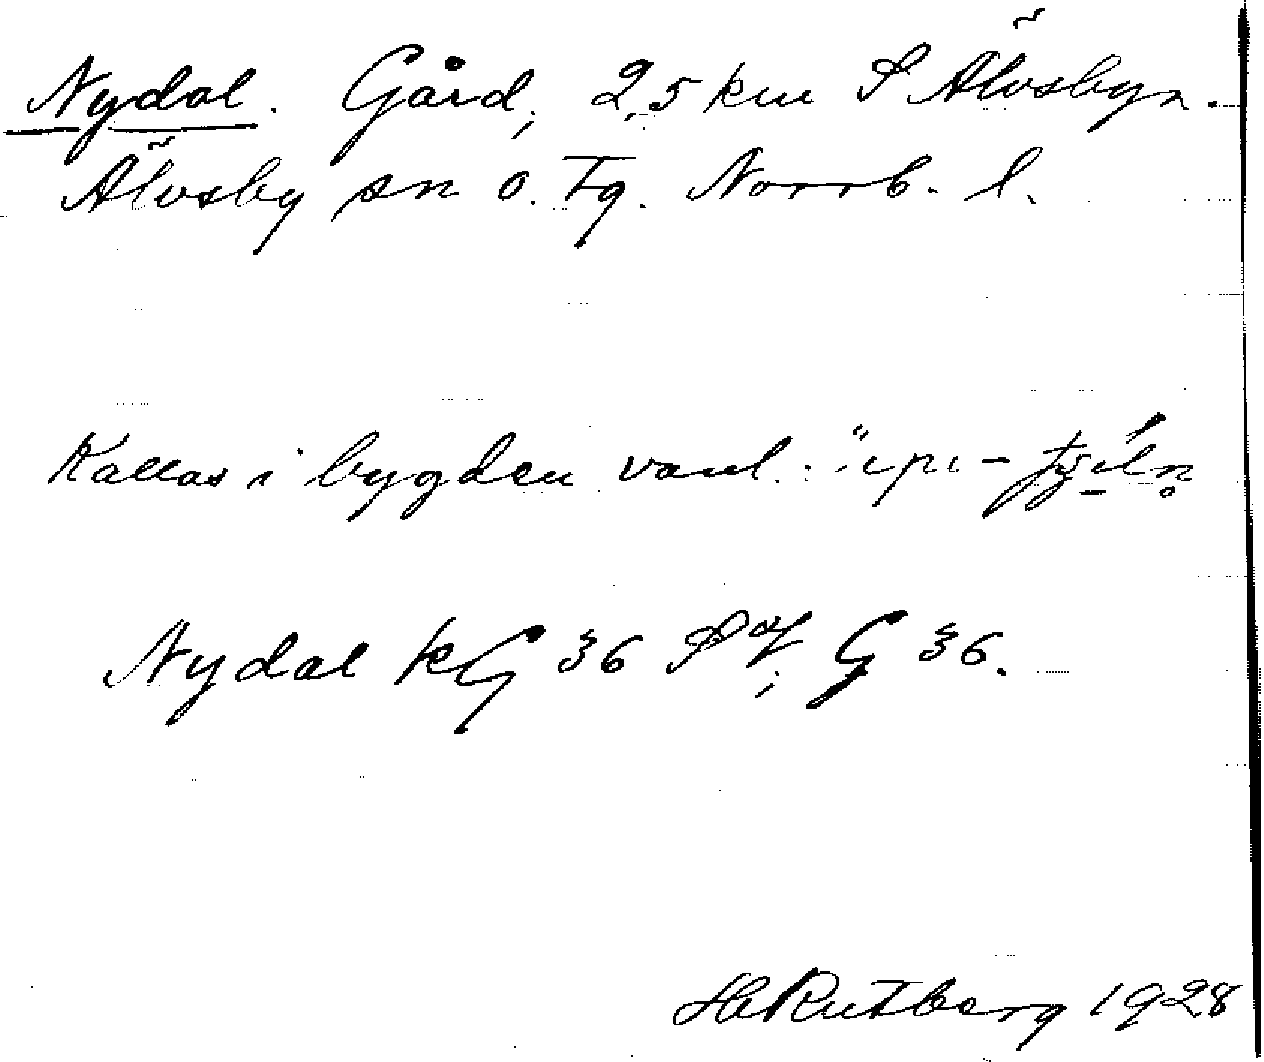 Nydal. Gård, 2,5 km S Älvsbyn.
Älvsby sn o. Tg. Norrb. l.
Kallas i bygden vanl.
Nydal kG 36 SV; G 36.
H Rutberg 1928